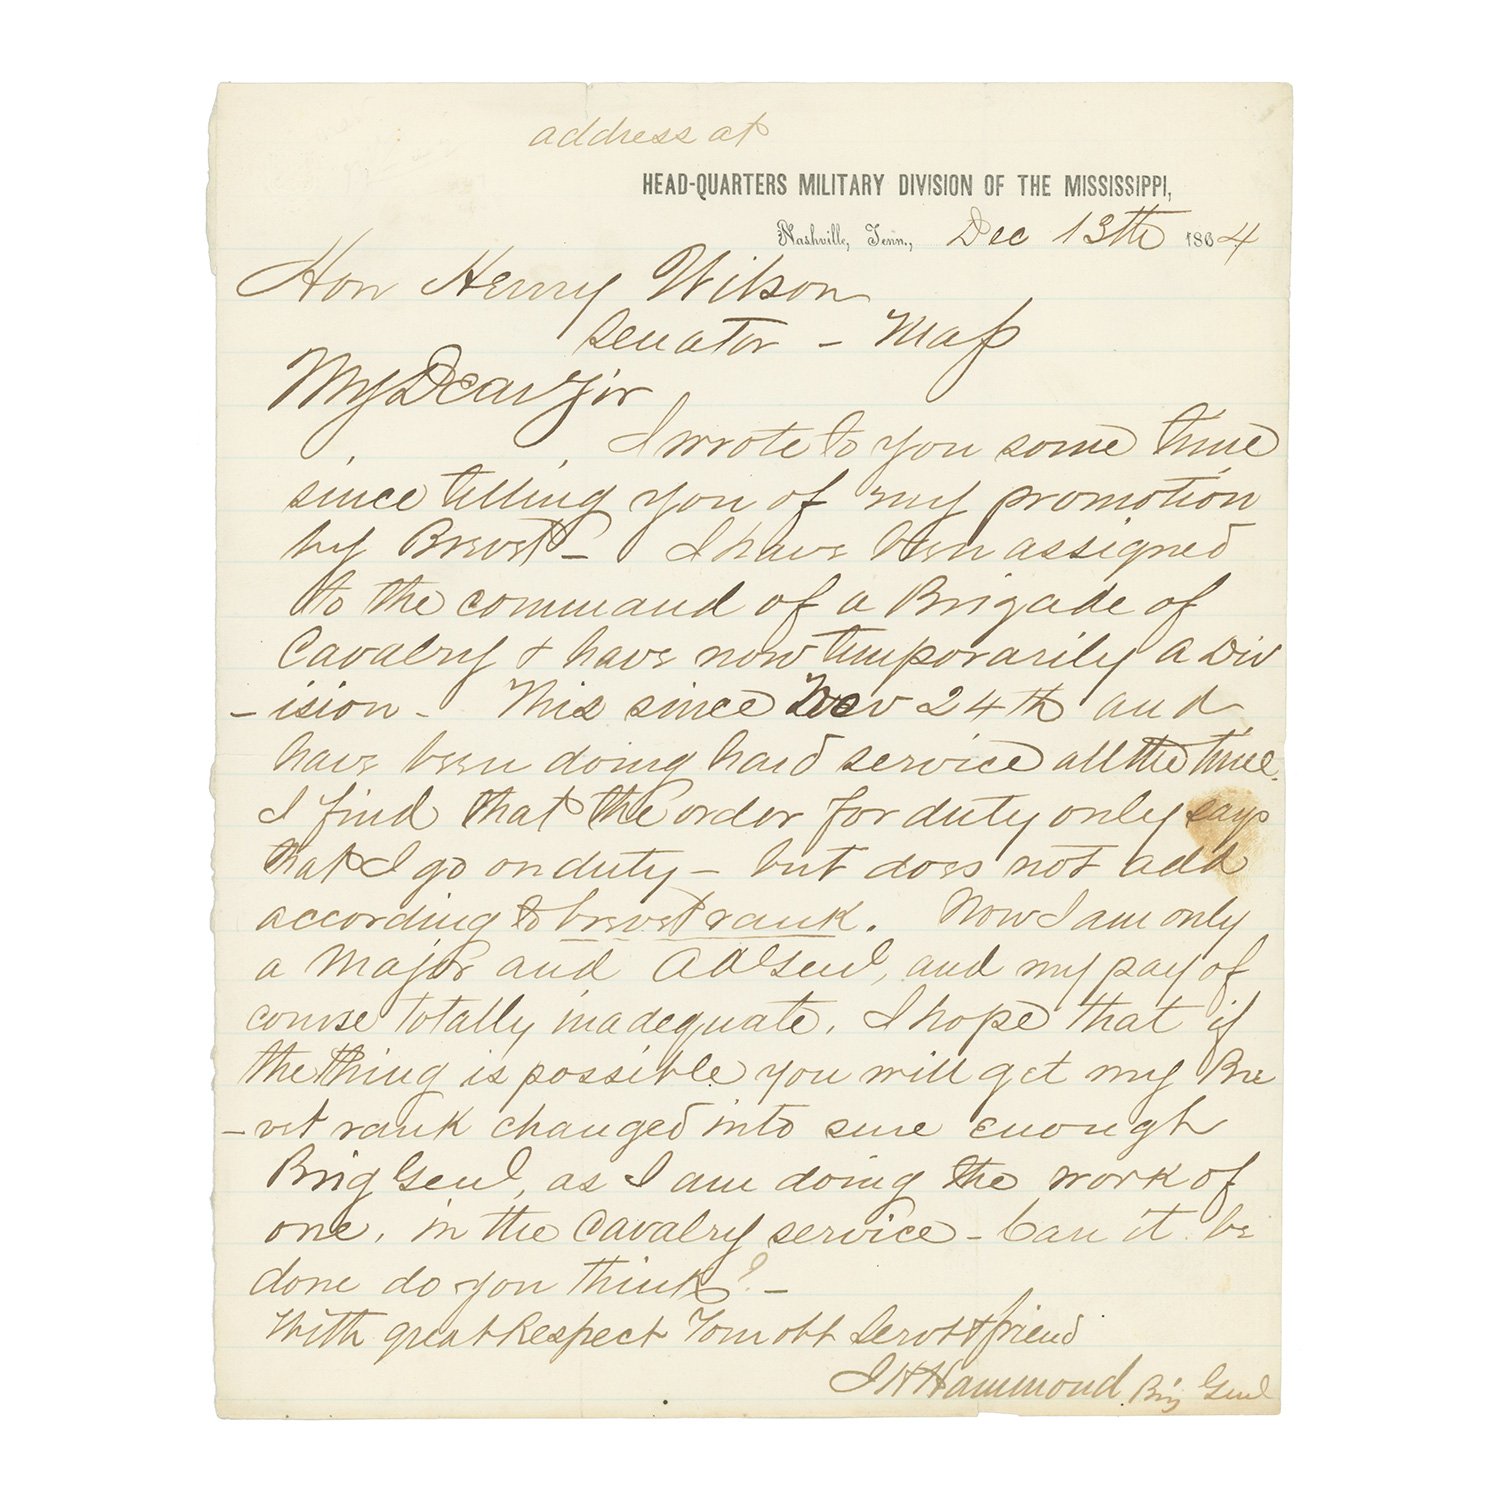 address at
HEAD-QUARTERS MILITARY DIVISION OF THE MISSISSIPPI,
Nashville, Tenn., Dec 13th 1864
Hon Henry Wilson
Senator - Mass
My Dear Sir
I wrote to you some time
since telling you of my promotion
by Brevet - I have been assigned
to the command of a Brigade of
Cavalry & have now temporarily a Div
- ision - This since Nov 24th and
have been doing hard service all the time.
I find that the order for duty only says
that I go on duty - but does not add
according to brevet rank. Now I am only
a Major and AAGenl, and my pay of
course totally inadequate. I hope that if
the thing is possible you will get my Bre
- vet rank changed into sure enough
Brig Genl, as I am doing the work of
one, in the Cavalry service - Can it be
done do you think? -
With great Respect Your obt Servt & friend
J H Hammond Brig Genl